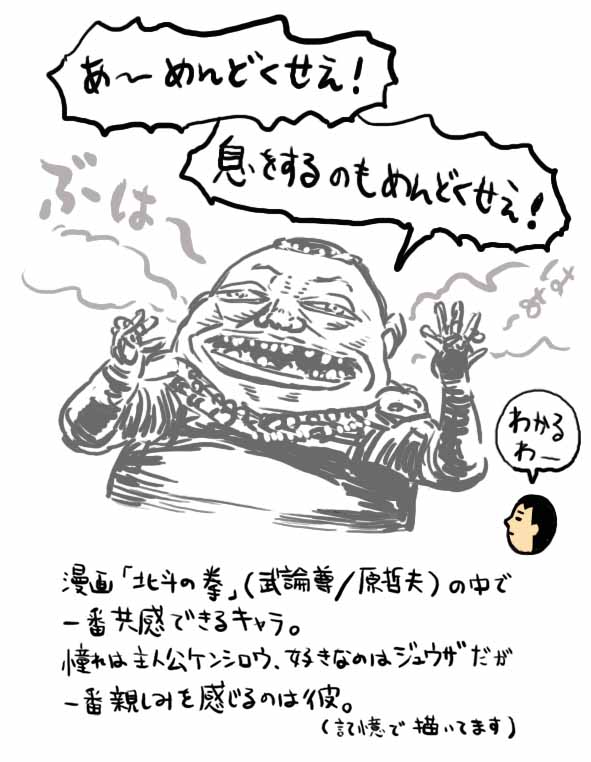 あ〜めんどくせえ！
息をするのもめんどくせえ！
ぶは〜
わかる
わー
漫画「北斗の拳」(武論尊/原哲夫)の中で
一番共感できるキャラ。
憧れは主人公ケンシロウ、好きなのはジュウザだが
一番親しみを感じるのは彼。
(記憶で描いてます)